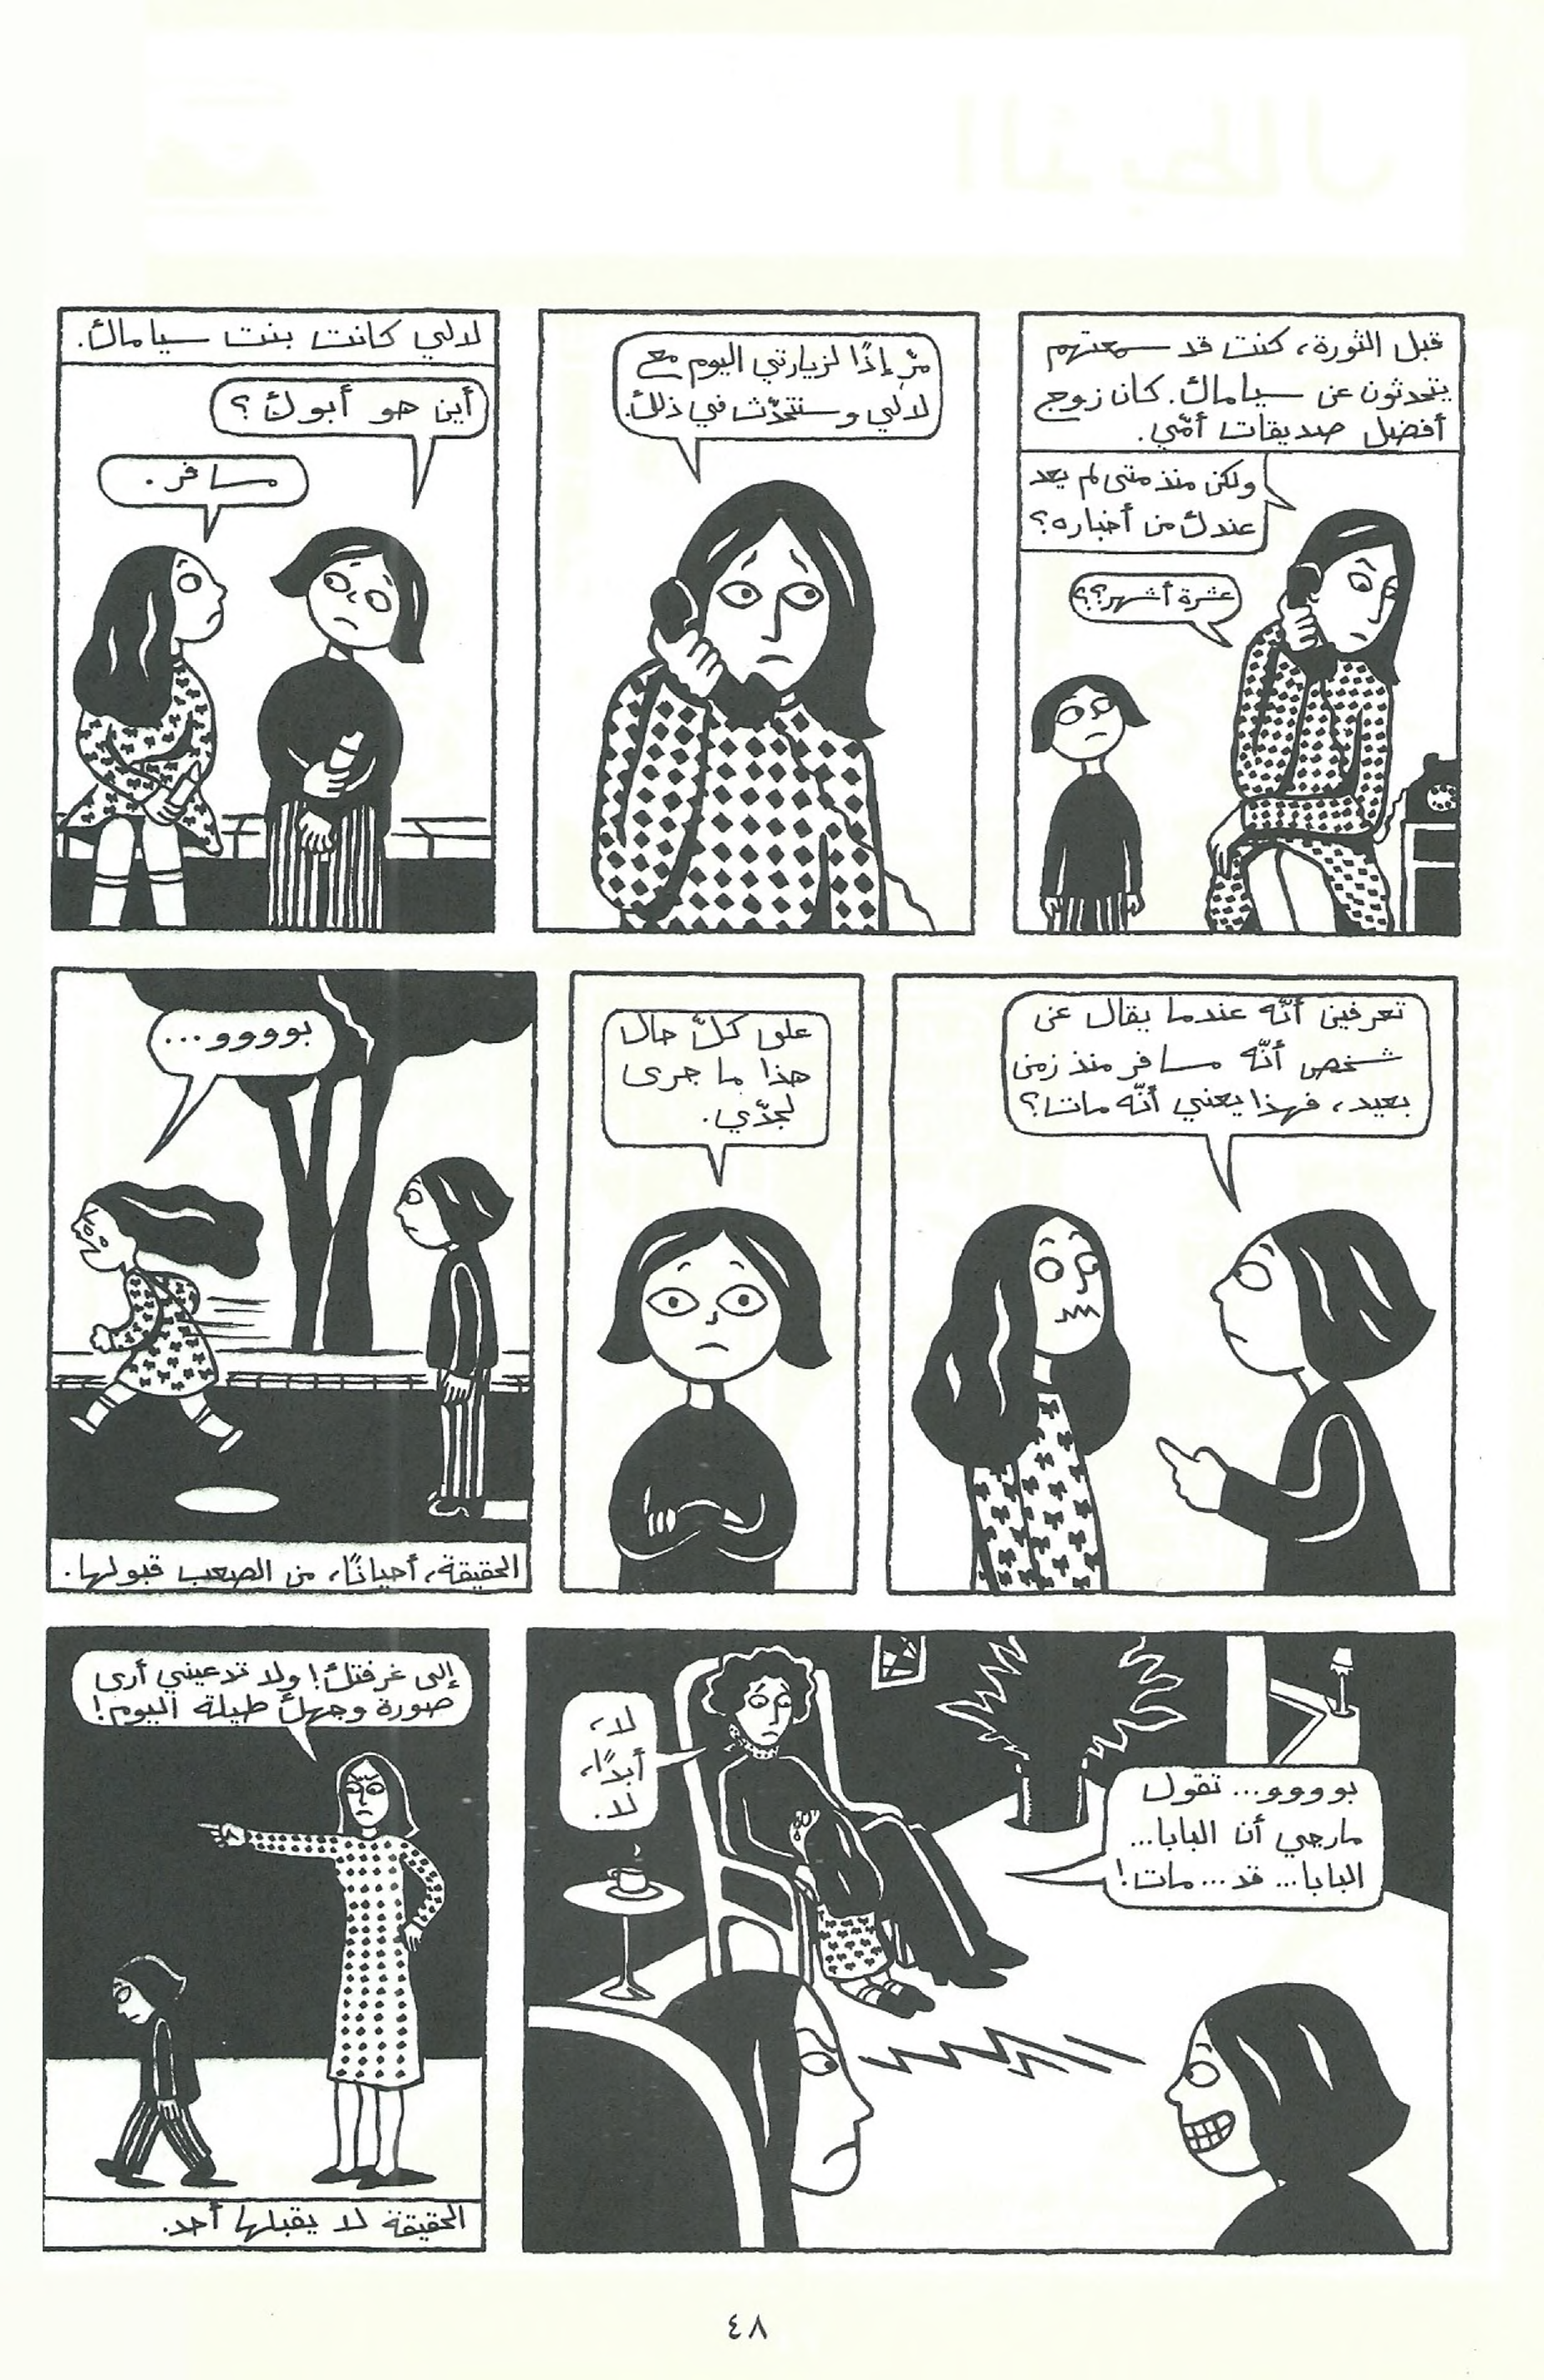 قبل الثورة، كنت قد سمعتهم
يتحدثون عن سياماك. كان زوج
أفضل صديقات أمّي.
ولكن منذ متى لم يعد
عندك من أخباره؟
عشرة أشهر؟؟
مرّ إذًا لزيارتي اليوم مع
لالي وسنتحدّث في ذلك.
لالي كانت بنت سياماك.
أين هو أبوك؟
مسافر.
تعرفين أنّه عندما يقال عن
شخص أنّه مسافر منذ زمن
بعيد، فهذا يعني أنّه مات؟
على كلّ حال
هذا ما جرى
لجدّي.
بوووو...
الحقيقة، أحيانًا، من الصعب قبولها.
بوووو... تقول
مارجي أن البابا...
البابا... قد... مات!
لا،
أبدًا،
لا.
إلى غرفتك! ولا تدعيني أرى
صورة وجهك طيلة اليوم!
الحقيقة لا يقبلها أحد.
٤٨